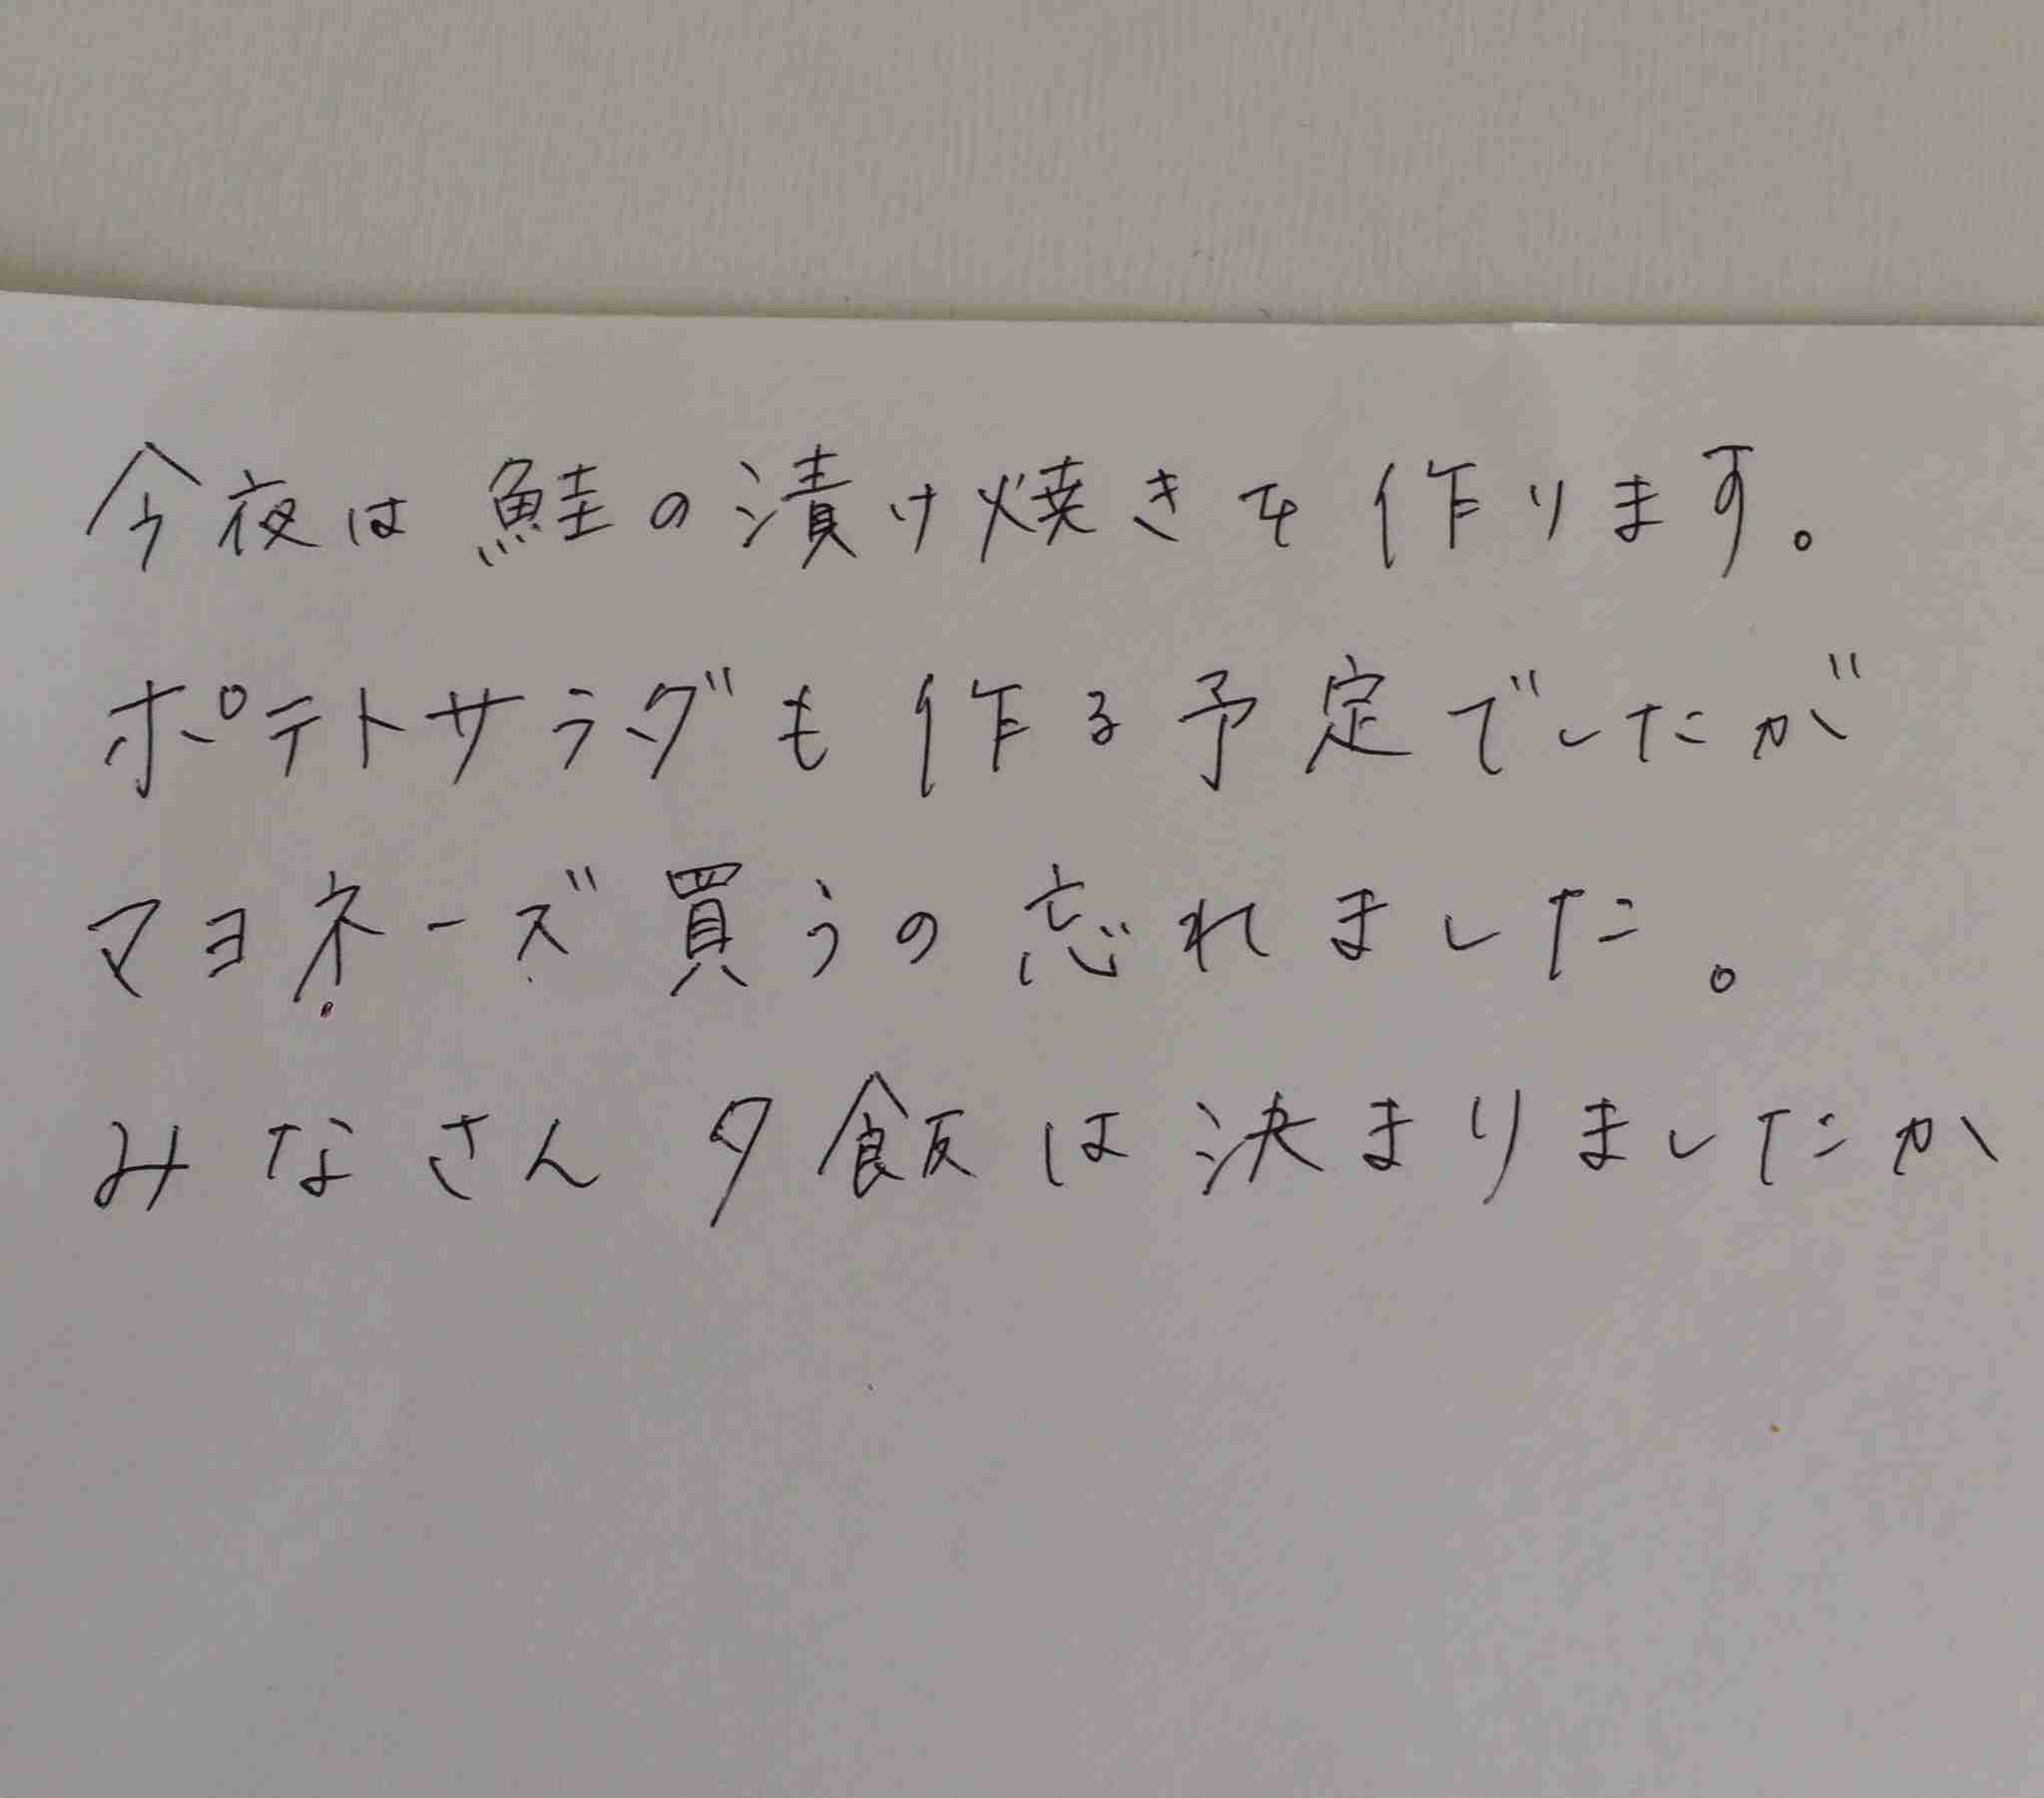 今夜は鮭の漬け焼きを作ります。
ポテトサラダも作る予定でしたが
マヨネーズ買うの忘れました。
みなさん夕飯は決まりましたか